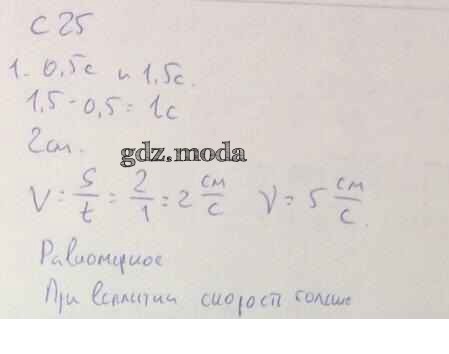 С 25
1. 0,5с и 1,5с.
1,5 - 0,5 = 1с
2см.
gdz.moda
V = S/t = 2/1 = 2 см/с V = 5 см/с.
Равномерное
При скорость больше